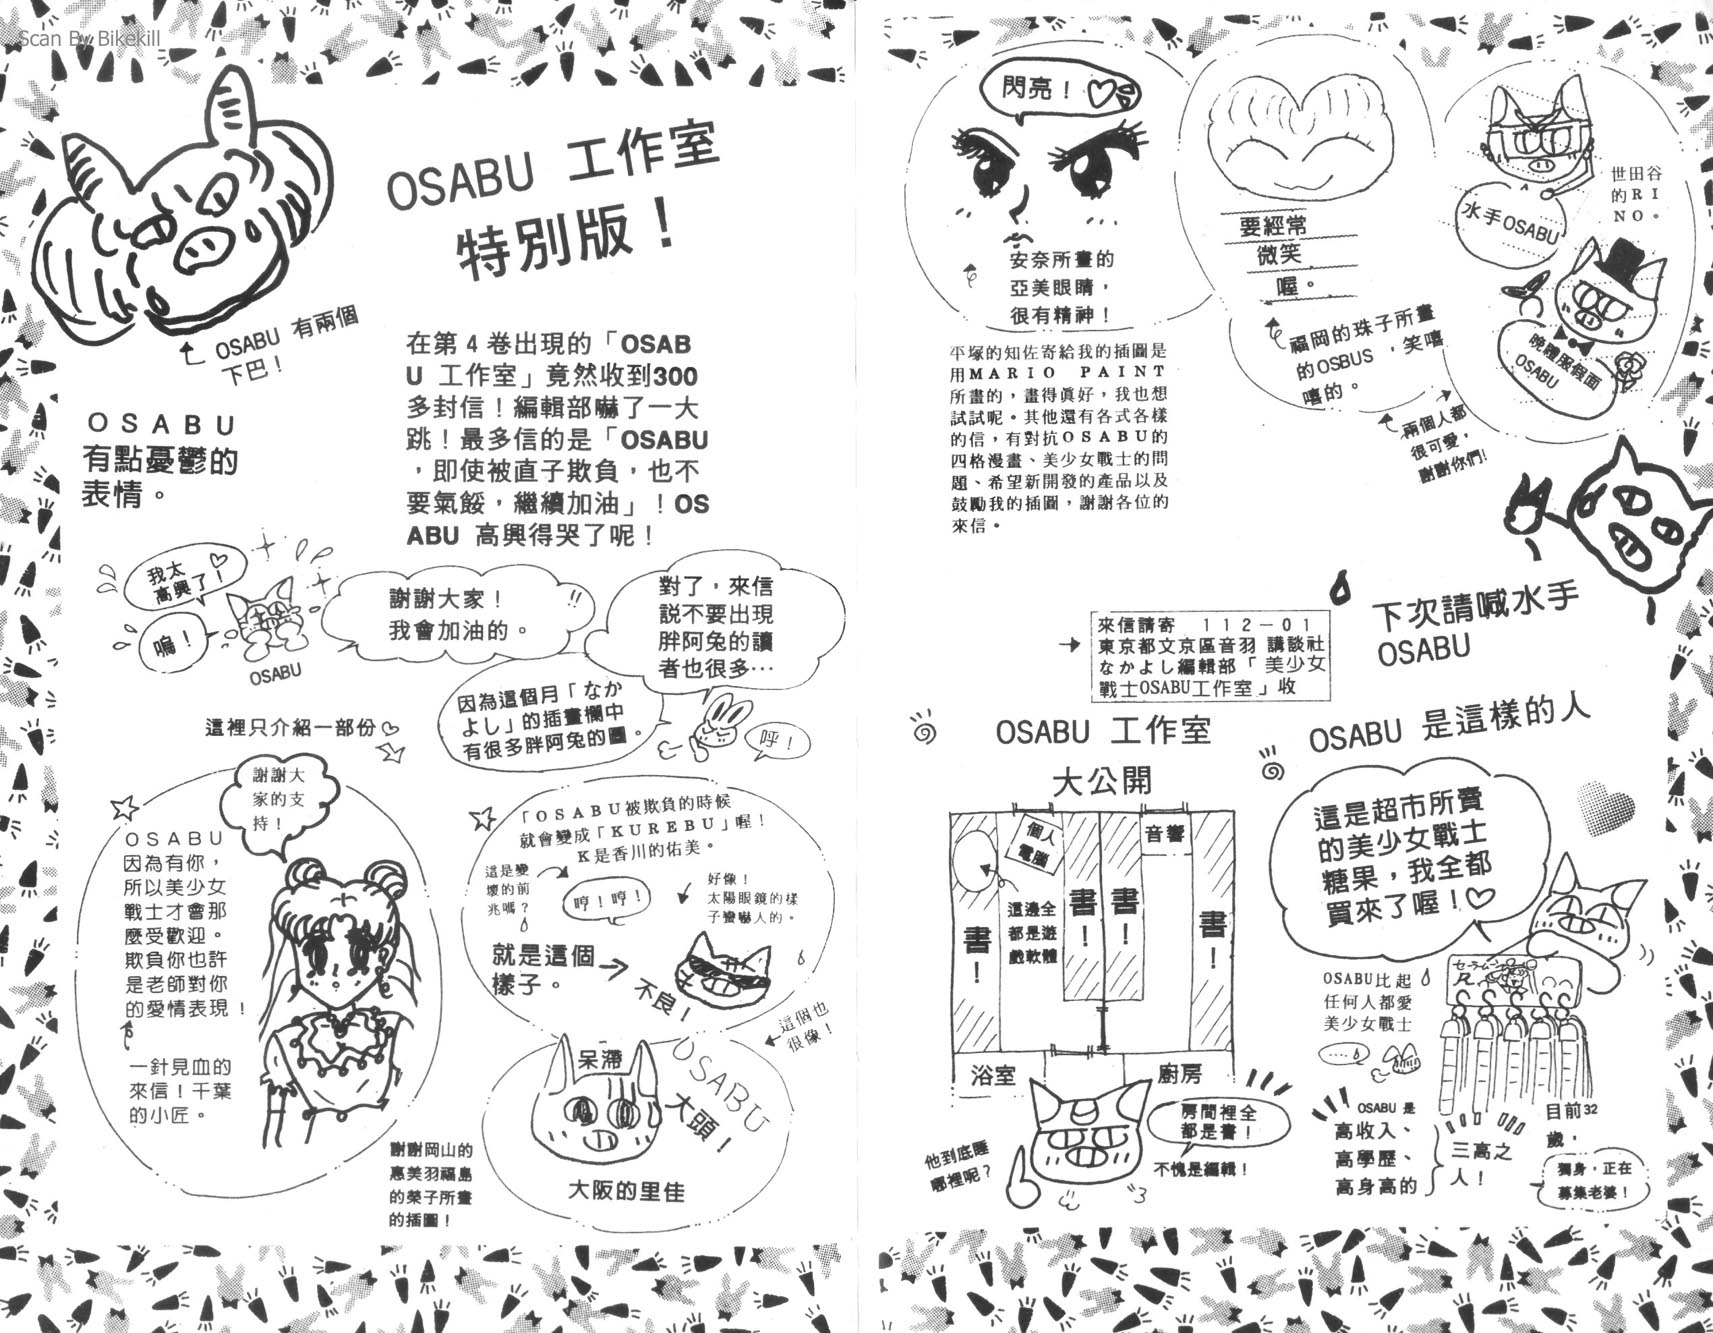 Scan By Bikekill
OSABU 工作室
特別版！
OSABU 有兩個
下巴！
OSABU
有點憂鬱的
表情。
在第 4 卷出現的「OSAB
U 工作室」竟然收到300
多封信！編輯部嚇了一大
跳！最多信的是「OSABU
，即使被直子欺負，也不
要氣餒，繼續加油」！OS
ABU 高興得哭了呢！
我太
高興了！
嗚！
OSABU
謝謝大家！
我會加油的。
!!
對了，來信
說不要出現
胖阿兔的讀
者也很多…
因為這個月「なか
よし」的插畫欄中
有很多胖阿兔的圖。
呼！
這裡只介紹一部份
謝謝大
家的支
持！
OSABU
因為有你，
所以美少女
戰士才會那
麼受歡迎。
欺負你也許
是老師對你
的愛情表現！
一針見血的
來信！千葉
的小匠。
「OSABU被欺負的時候
就會變成「KUREBU」喔！
K是香川的佑美。
這是變
壞的前
兆嗎？
哼！哼！
好像！
太陽眼鏡的樣
子蠻嚇人的。
就是這個
樣子。
不良！
這個也
很像！
呆滯
OSABU
大頭！
大阪的里佳
謝謝岡山的
惠美羽福島
的榮子所畫
的插圖！
閃亮！
安奈所畫的
亞美眼睛，
很有精神！
要經常
微笑
喔。
福岡的珠子所畫
的OSBUS，笑嘻
嘻的。
世田谷
的RI
NO。
水手OSABU
晚禮服假面
OSABU
兩個人都
很可愛，
謝謝你們!
平塚的知佐寄給我的插圖是
用MARIO PAINT
所畫的，畫得真好，我也想
試試呢。其他還有各式各樣
的信，有對抗OSABU的
四格漫畫、美少女戰士的問
題、希望新開發的產品以及
鼓勵我的插圖，謝謝各位的
來信。
下次請喊水手
OSABU
來信請寄 112－01
東京都文京區音羽 講談社
なかよし編輯部「美少女
戰士OSABU工作室」收
OSABU 工作室
大公開
書！
個人
電腦
這邊全
都是遊
戲軟體
書！
書！
音響
書！
浴室
廚房
他到底睡
哪裡呢？
房間裡全
都是書！
不愧是編輯！
OSABU 是這樣的人
這是超市所賣
的美少女戰士
糖果，我全都
買來了喔！
OSABU比起
任何人都愛
美少女戰士
セーラームーン
R
OSABU 是
高收入、
高學歷、
高身高的
三高之
人！
目前32
歲，
獨身，正在
募集老婆！